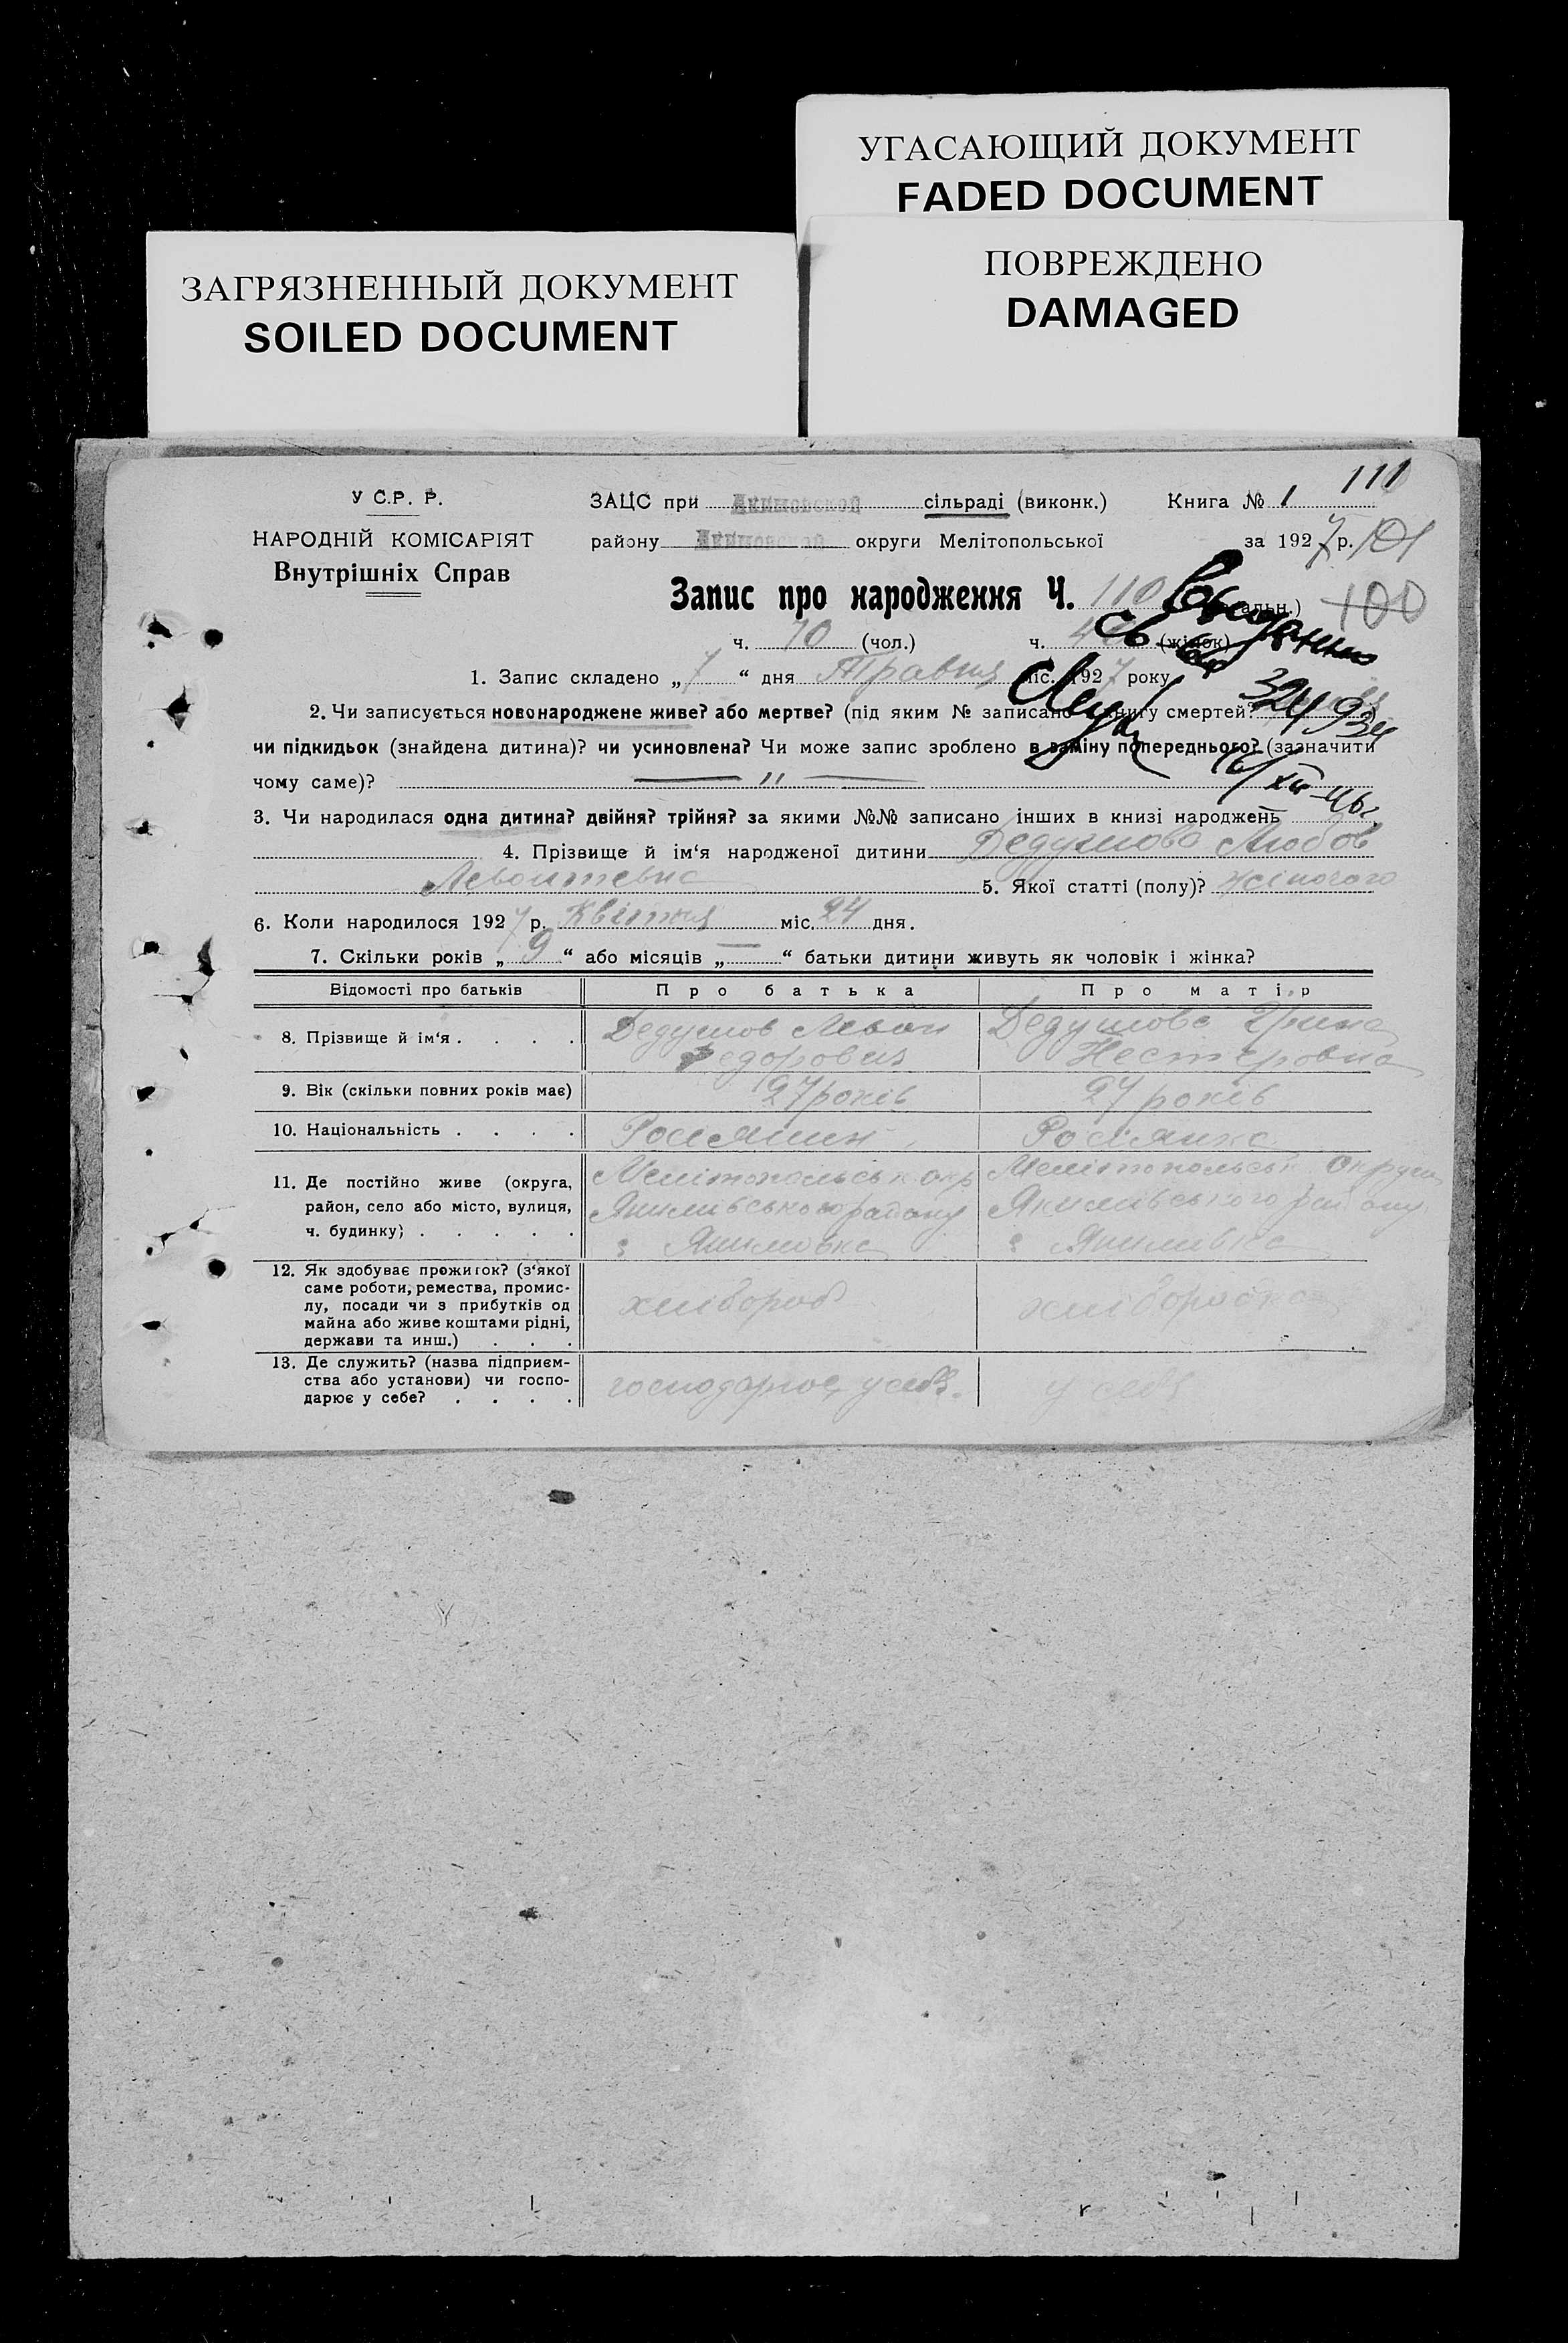 УГАСАЮЩИЙ ДОКУМЕНТ
FADED DOCUMENT
ПОВРЕЖДЕНО
DAMAGED
ЗАГРЯЗНЕННЫЙ ДОКУМЕНТ
SOILED DOCUMENT
111
У С.Р. Р.
ЗАЦС при Акимовской сільраді (виконк.) Книга № 1
НАРОДНІЙ КОМІСАРІЯТ
району Акимовской округи Мелітопольської за 1927 р. 101
Внутрішніх Справ
Запис про народження Ч. 110 100
ч. 70 (чол.) ч. (жінок)
1. Запис складено „7“ дня Травня міс. 1927 року
2. Чи записується новонароджене живе? або мертве? (під яким № записано в книгу смертей?
чи підкидьок (знайдена дитина)? чи усиновлена? Чи може запис зроблено в заміну попереднього? (зазначити
чому саме)? — „ —
3. Чи народилася одна дитина? двійня? трійня? за якими №№ записано інших в книзі народжень
4. Прізвище й ім‘я народженої дитини Дедушова Любов
Левонтевна 5. Якої статті (полу)? жіночого
6. Коли народилося 1927 р. Квітня міс. 24 дня.
7. Скільки років „9“ або місяців „—“ батьки дитини живуть як чоловік і жінка?
Відомості про батьків Про батька Про матір
8. Прізвище й ім‘я . . . . Дедушов Левон Федорович Дедушова Нестеровна
9. Вік (скільки повних років має) 27 років 27 років
10. Національність . . . . Росіянин Росіянка
11. Де постійно живе (округа, район, село або місто, вулиця, ч. будинку) . . . . . Мелітопольськ. окр Якимівського району с Якимовка Мелітопольськ округи Якимівського району с Якимівка
12. Як здобуває прожиток? (з‘якої саме роботи, ремества, промислу, посади чи з прибутків од майна або живе коштами рідні, держави та инш.) . . . хлібороб хліборобка
13. Де служить? (назва підприємства або установи) чи господарює у себе? . . . . господарює у себе. у себе